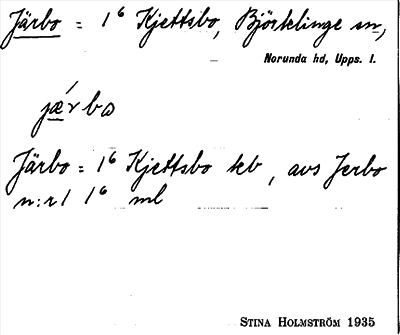 Järbo = 1⁶ Kjettsbo, Björklinge sn,
Norunda hd, Upps. l.
jæ´rbω
Järbo = 1⁶ Kjettsbo kb, avs Jerbo
n:r 1 1⁶ ml
STINA HOLMSTRÖM 1935